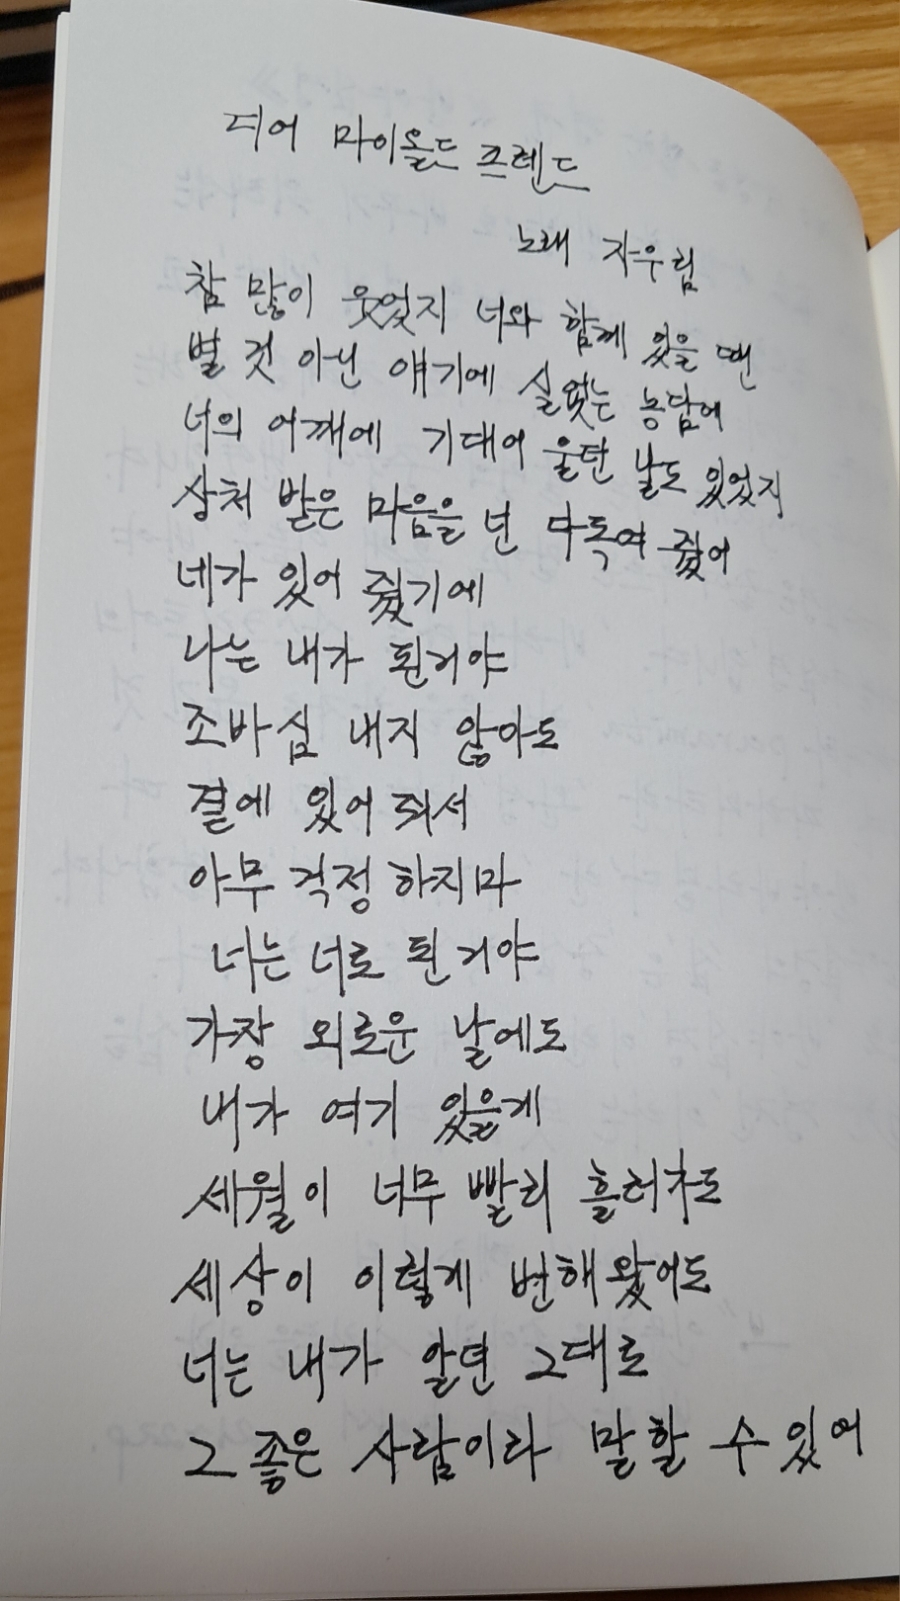 디어 마이올드 프렌드
노래 자우림
참 많이 웃었지 너와 함께 있을 땐
별 것 아닌 얘기에 실없는 농담에
너의 어깨에 기대어 울던 날도 있었지
상처 받은 마음을 넌 다독여 줬어
네가 있어 줬기에
나는 내가 된거야
조바심 내지 않아도
곁에 있어 줘서
아무 걱정 하지마
너는 너로 된거야
가장 외로운 날에도
내가 여기 있을게
세월이 너무 빨리 흘러가도
세상이 이렇게 변해 왔어도
너는 내가 알던 그대로
그 좋은 사람이라 말할 수 있어